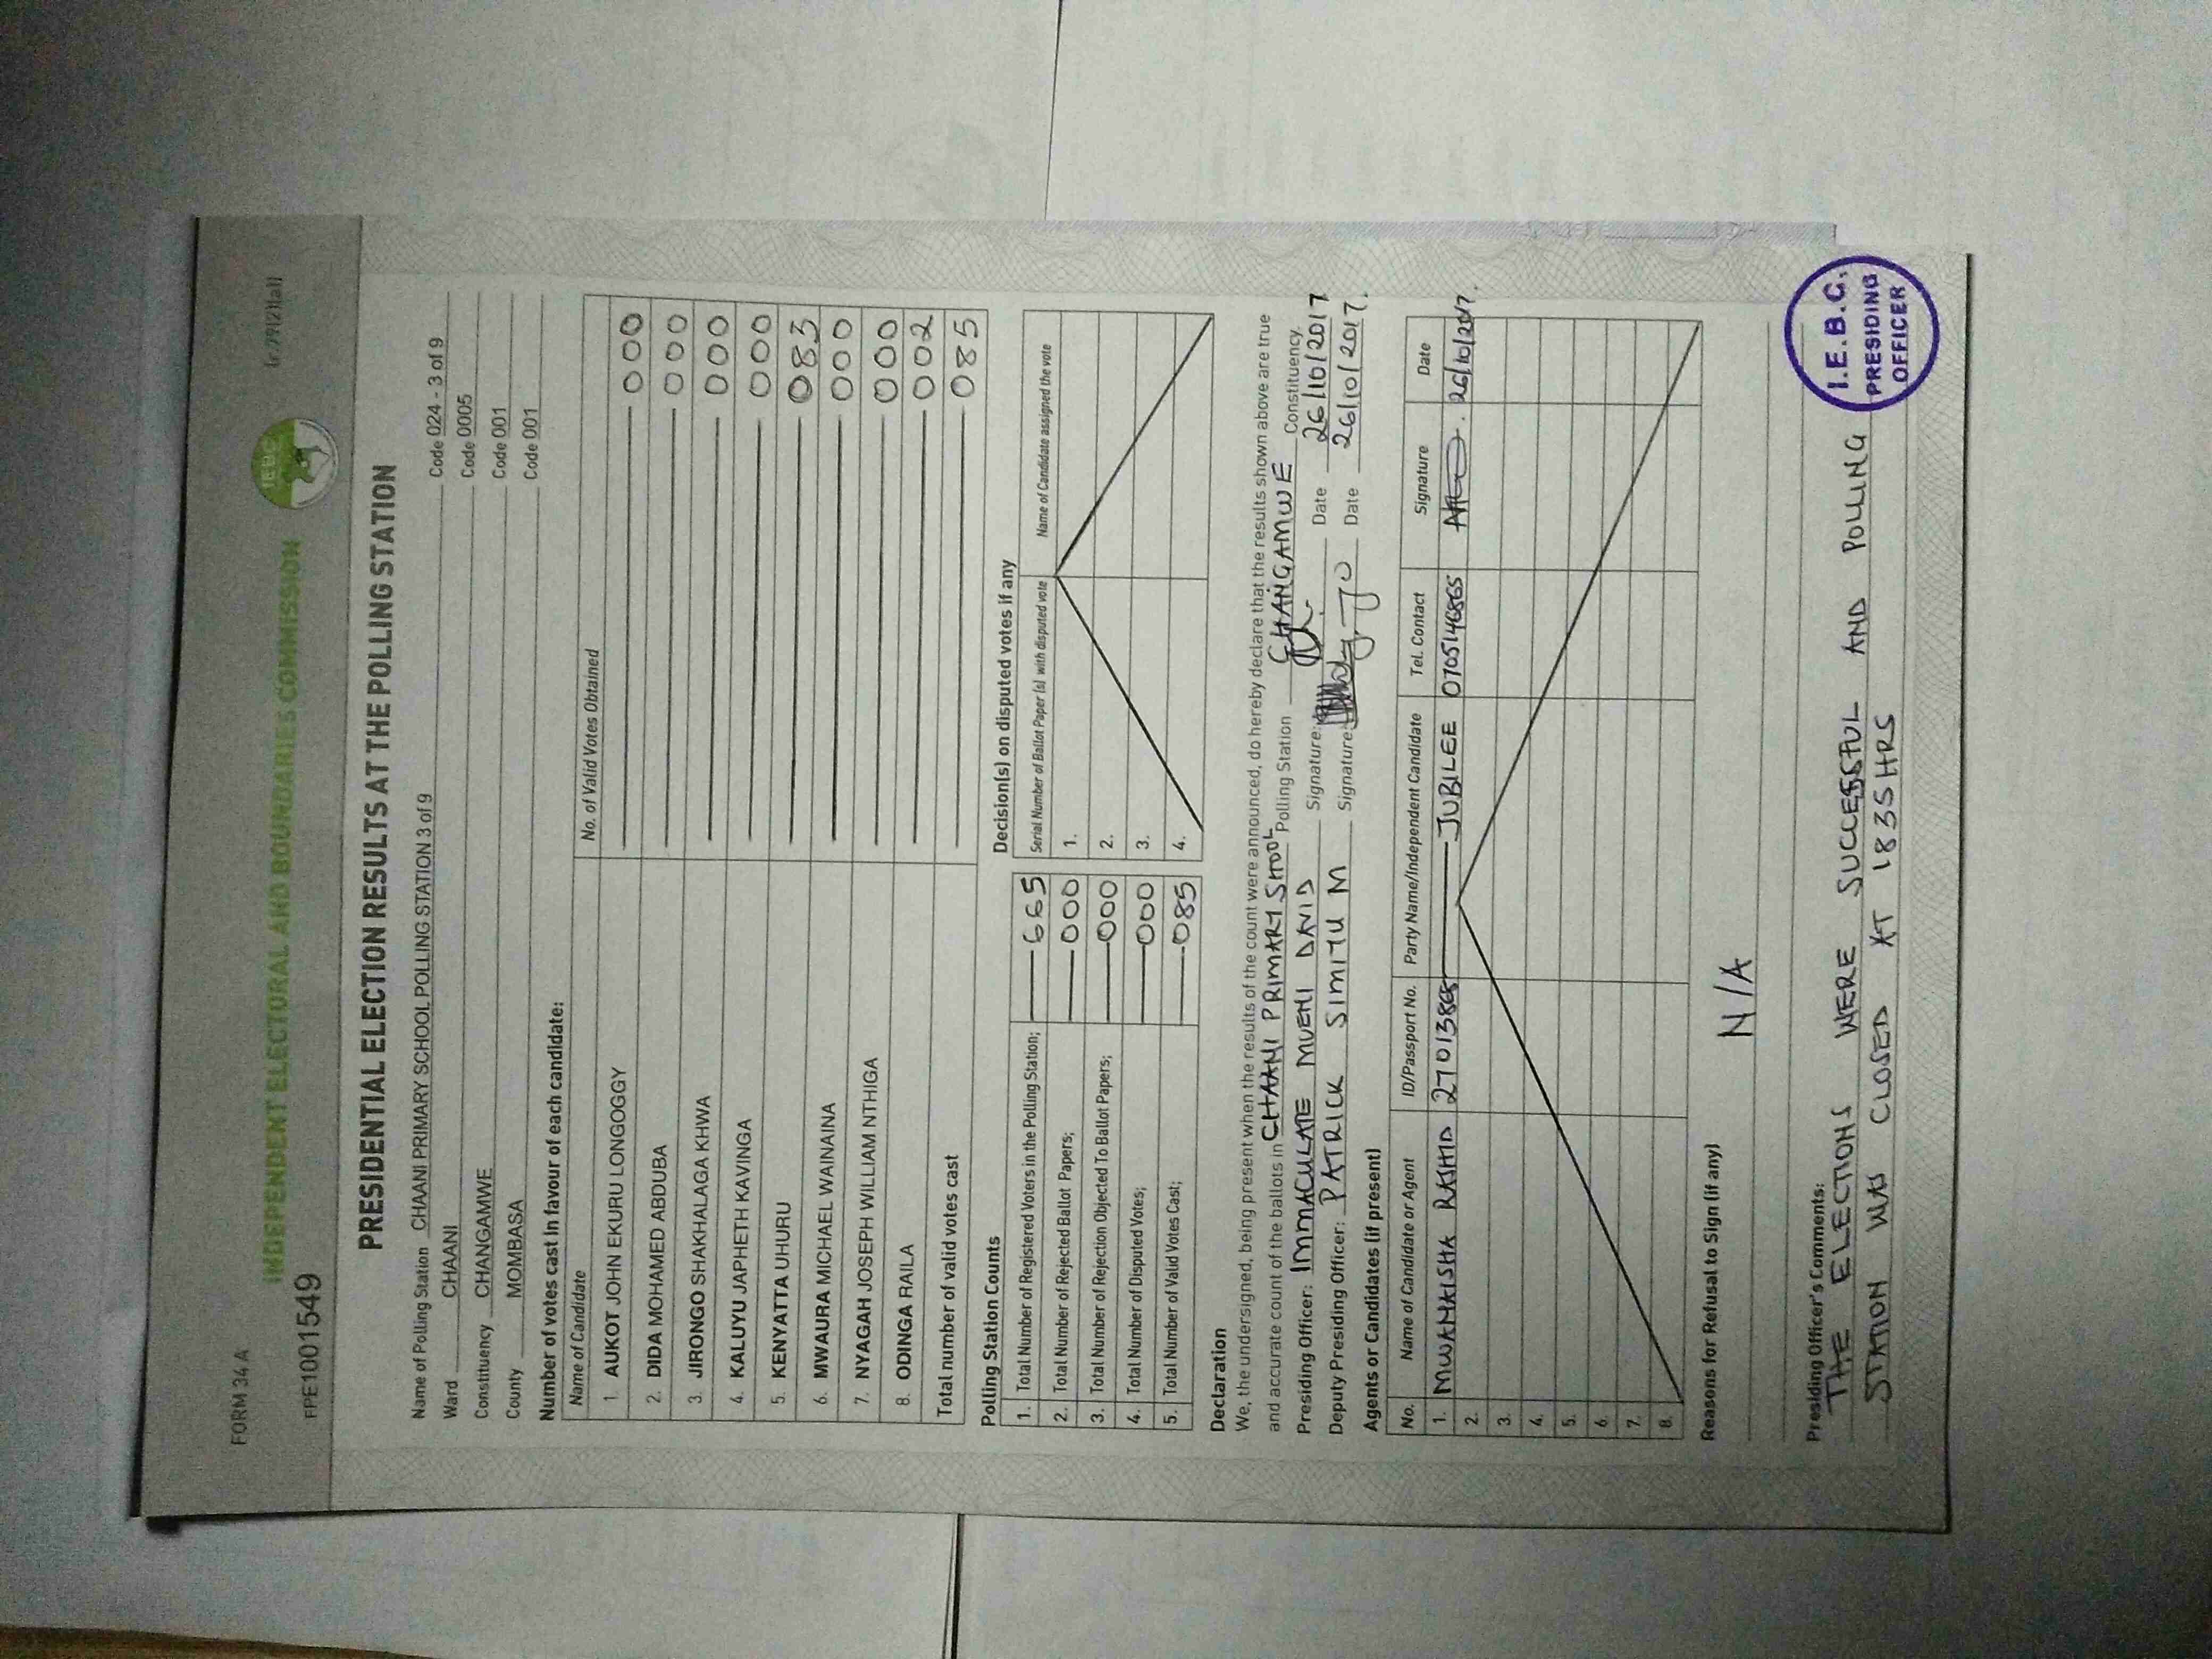 FORM 34 A
(r.79(2)(a))
INDEPENDENT ELECTORAL AND BOUNDARIES COMMISSION
IEBC
FPE1001549
PRESIDENTIAL ELECTION RESULTS AT THE POLLING STATION
Name of Polling Station CHAANI PRIMARY SCHOOL POLLING STATION 3 of 9 Code 024 - 3 of 9
Ward CHAANI Code 0005
Constituency CHANGAMWE Code 001
County MOMBASA Code 001
Number of votes cast in favour of each candidate:
Name of Candidate No. of Valid Votes Obtained
1. AUKOT JOHN EKURU LONGOGGY 000
2. DIDA MOHAMED ABDUBA 000
3. JIRONGO SHAKHALAGA KHWA 000
4. KALUYU JAPHETH KAVINGA 000
5. KENYATTA UHURU 083
6. MWAURA MICHAEL WAINAINA 000
7. NYAGAH JOSEPH WILLIAM NTHIGA 000
8. ODINGA RAILA 002
Total number of valid votes cast 085
Polling Station Counts
1. Total Number of Registered Voters in the Polling Station; 665
2. Total Number of Rejected Ballot Papers; 000
3. Total Number of Rejection Objected To Ballot Papers; 000
4. Total Number of Disputed Votes; 000
5. Total Number of Valid Votes Cast; 085
Decision(s) on disputed votes if any
Serial Number of Ballot Paper (s) with disputed vote Name of Candidate assigned the vote
1.
2.
3.
4.
Declaration
We, the undersigned, being present when the results of the count were announced, do hereby declare that the results shown above are true
and accurate count of the ballots in CHAANI PRIMARY SHOOL Polling Station CHANGAMWE Constituency.
Presiding Officer: IMMACULATE MUENI DAVID Signature: Date 26/10/2017
Deputy Presiding Officer: PATRICK SIMITU M Signature: Date 26/10/2017.
Agents or Candidates (iif present)
No. Name of Candidate or Agent ID/Passport No. Party Name/Independent Candidate Tel. Contact Signature Date
1. MWANAISHA RASHID JUBILEE 0705146865 26/10/2017.
2.
3.
4.
5.
6.
7.
8.
Reasons for Refusal to Sign (if any)
N/A
Presiding Officer's Comments:
THE ELECTIONS WERE SUCCESSFUL AND POLLING
STATION WAS CLOSED AT 1835HRS
I.E.B.C.
PRESIDING
OFFICER